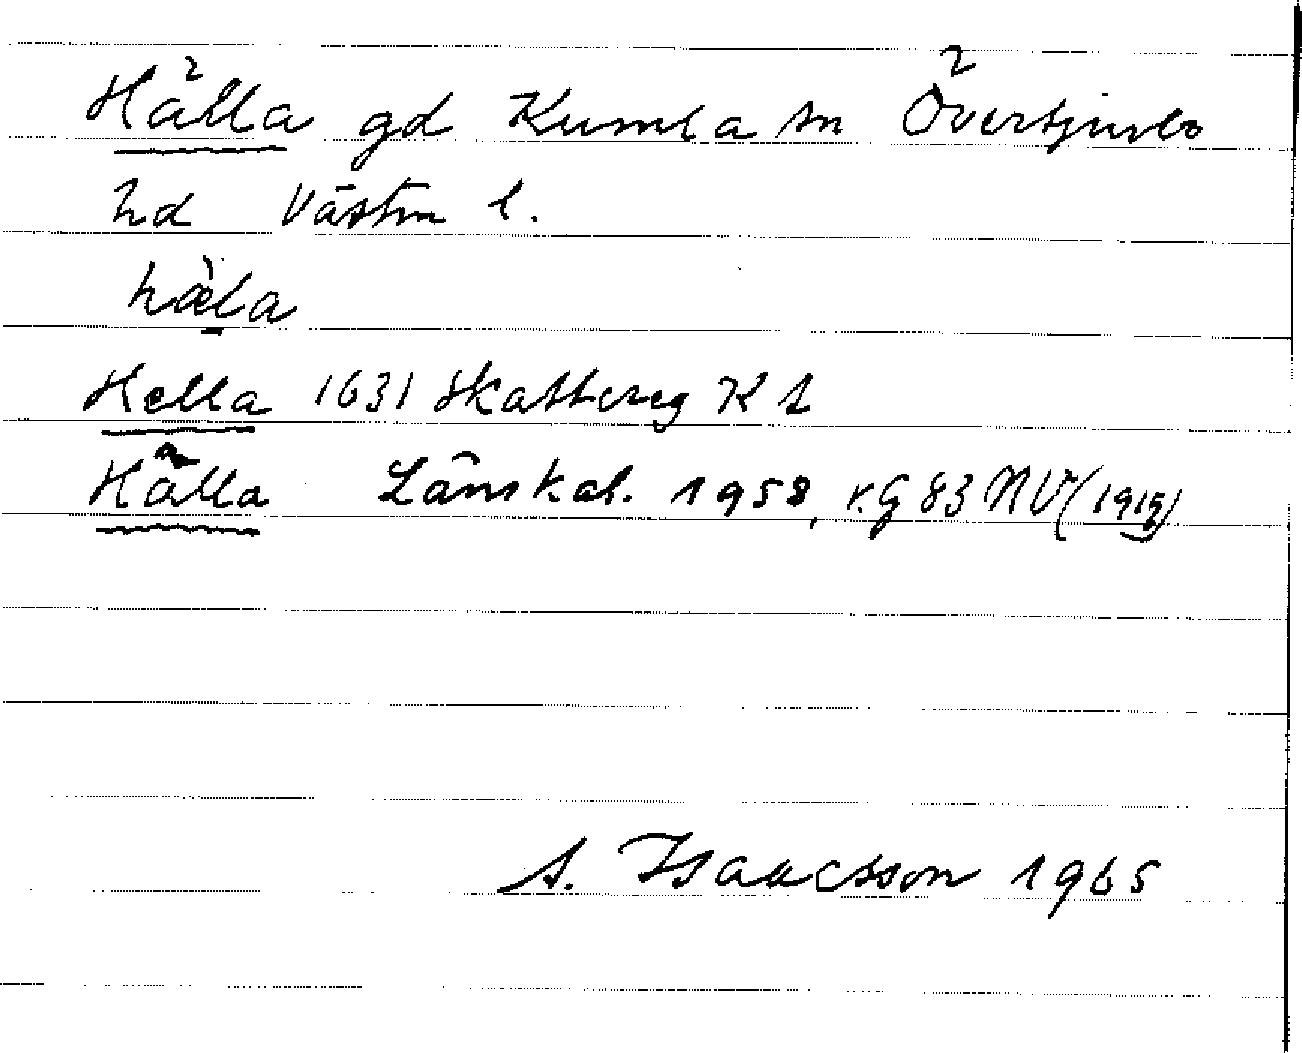 Hälla gd Kumla sn Övertjurbo
hd Västm l.
hàla
Hella 1631 Skattereg KA
Hälla Länskal. 1958, r.G 83 NV (1915)
A. Isaacsson 1965